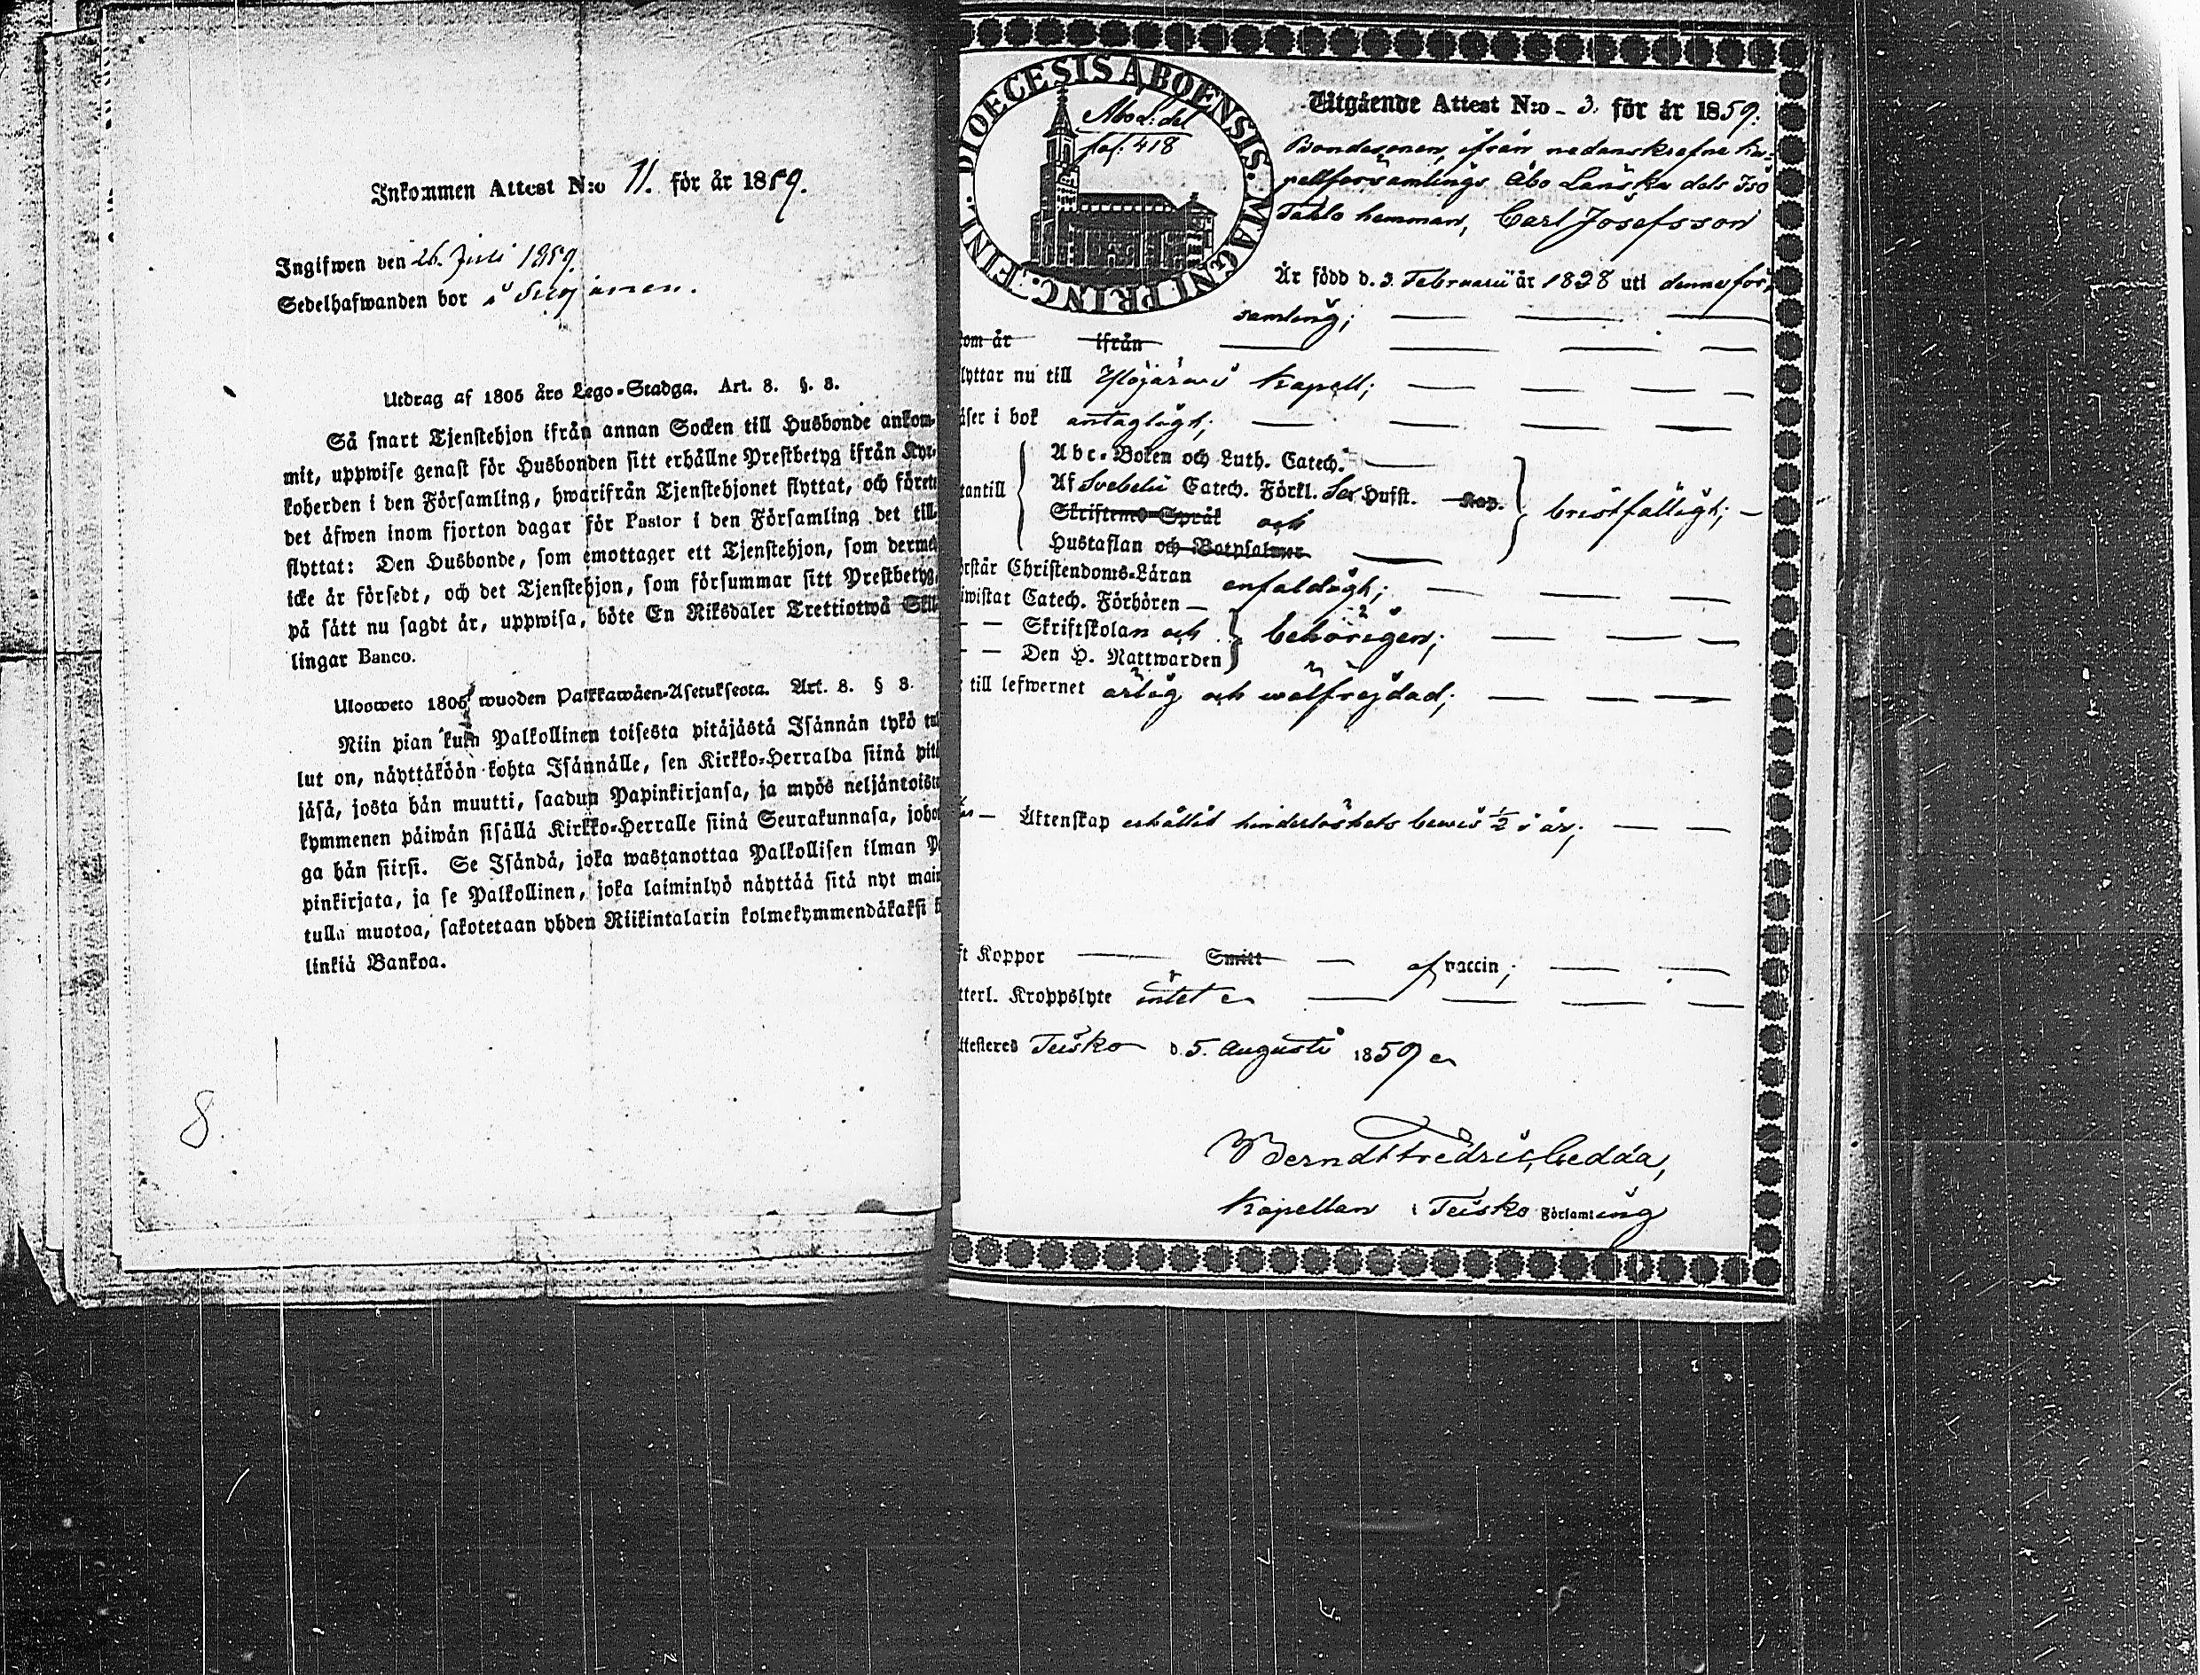 Inkommen Attest N:o 11. för år 1859.
Ingifwen den 26. Juli 1859.
Sedelhafwanden bor å
Utdrag af 1805 års Lego-Stadga. Art. 8. §. 8.
Så snart Tjenstehjon ifrån annan Socken till Husbonde ankom-
mit, uppwise genast för Husbonden sitt erhållne Prestbetyg ifrån Kyr-
koherden i den Församling, hwarifrån Tjenstehjonet flyttat, och förete
det äfwen inom fjorton dagar för Pastor i den Församling det till-
flyttat: Den Husbonde, som emottager ett Tjenstehjon, som dermed
icke är försedt, och det Tjenstehjon, som försummar sitt Prestbetyg,
på sätt nu sagdt är, uppwisa, böte En Riksdaler Trettiotwå Skil-
lingar Banco.
Ulosweto 1805 wuoden Palkkawäen-Asetuksesta. Art. 8. § 8.
Niin pian kuin Palkollinen toisesta pitäjästä Isännän tykö tul
lut on, näyttäköön kohta Isännälle, sen Kirkko-Herralda siinä pitä
jäsä, josta hän muutti, saadun Papinkirjansa, ja myös neljäntoista
kymmenen päiwän sisällä Kirkko-Herralle siinä Seurakunnasa, johon
ga hän siirsi. Se Isändä, joka wastanottaa Palkollisen ilman Pa
pinkirjata, ja se Palkollinen, joka laiminlyö näyttää sitä nyt mainit
tulla muotoa, sakotetaan yhden Riikintalarin kolmekymmendäkaksi k
linkiä Bankoa.
8.
DIOECESIS ABOENSIS. MAGNI PRINC. FINL.
Åbo L: del
fol: 418
Utgående Attest N:o 3. för år 1859.
Bondesonen, ifrån nedanskrefne Ka-
pellförsamlings Åbo Länska dels Iso
Tahlo hemman, Carl Josefsson
Är född d. 3. Februarii år 1838 uti denna för-
samling;
kom år ifrån
lyttar nu till Ylöjärvi Kapell;
äser i bok antagligt;
Abc-Boken och Luth. Catech.
utantill Af Svebelii Catech. Förkl. Sex Hufst. Kap. bristfälligt;
Skriftenes Språk och
Hustaflan och Botpsalmer
örstår Christendoms-Läran enfaldigt;
iwistat Catech. Förhören
Skriftskolan och behörigen;
Den H. Nattwarden
till lefwernet ärlig och wälfrejdad;
Äktenskap erhållit hinderlöshets bewis ½ i år;
ft Koppor Smitt af vaccin;
tterl. Kroppslyte intet
ttesteres Teisko d. 5. Augusti 1859
Berndt Fredric Gedda,
Kapellan i Teisko Församling